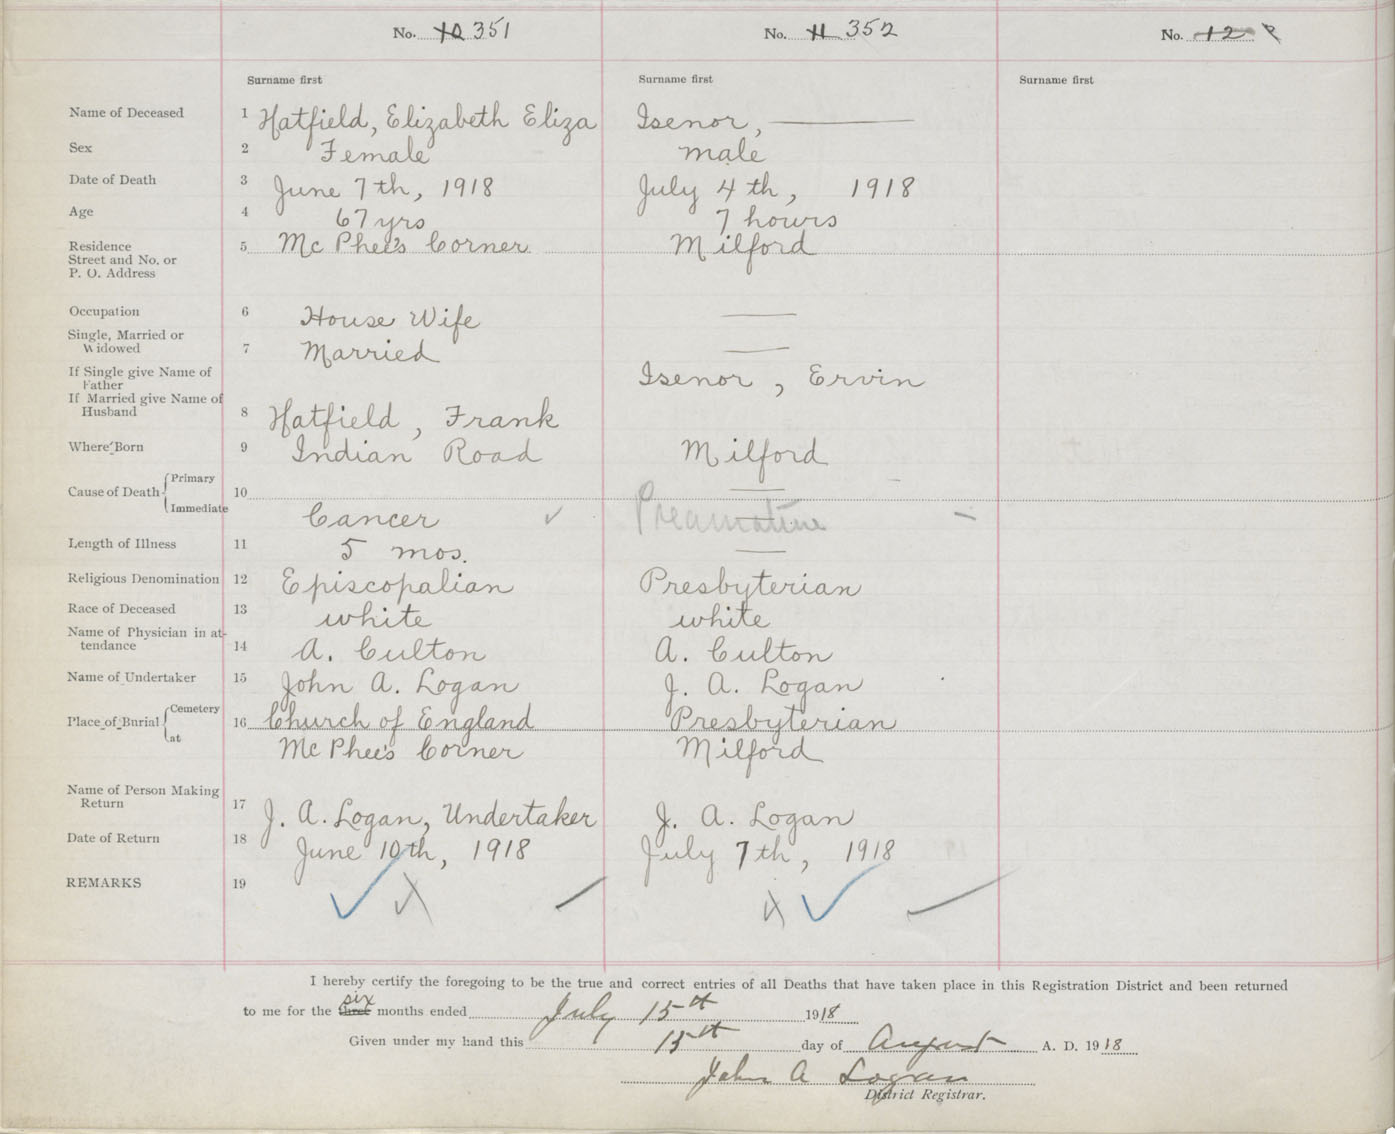 No. 10 351 No. 11 352 No. 12
Surname first Surname first Surname first
Name of Deceased 1 Hatfield, Elizabeth Eliza Isenor, ———
Sex 2 Female male
Date of Death 3 June 7th, 1918 July 4th, 1918
Age 4 67 yrs 7 hours
Residence 5 Mc Phee's Corner Milford
Street and No. or
P. O. Address
Occupation 6 House Wife —
Single, Married or
Widowed 7 Married —
If Single give Name of
Father Isenor, Ervin
If Married give Name of
Husband 8 Hatfield, Frank
Where Born 9 Indian Road Milford
Primary
Cause of Death 10 —
Immediate Cancer ✓ Preamature –
Length of Illness 11 5 mos. —
Religious Denomination 12 Episcopalian Presbyterian
Race of Deceased 13 white white
Name of Physician in at-
tendance 14 A. Culton A. Culton
Name of Undertaker 15 John A. Logan J. A. Logan
Cemetery
Place of Burial 16 Church of England Presbyterian
at Mc Phee's Corner Milford
Name of Person Making
Return 17 J. A. Logan, Undertaker J. A. Logan
Date of Return 18 June 10th, 1918 July 7th, 1918
REMARKS 19 ✓ X ✓ X ✓ ✓
I hereby certify the foregoing to be the true and correct entries of all Deaths that have taken place in this Registration District and been returned
to me for the three six months ended July 15th 1918
Given under my hand this 15th day of August A. D. 1918
John A Logan
District Registrar.